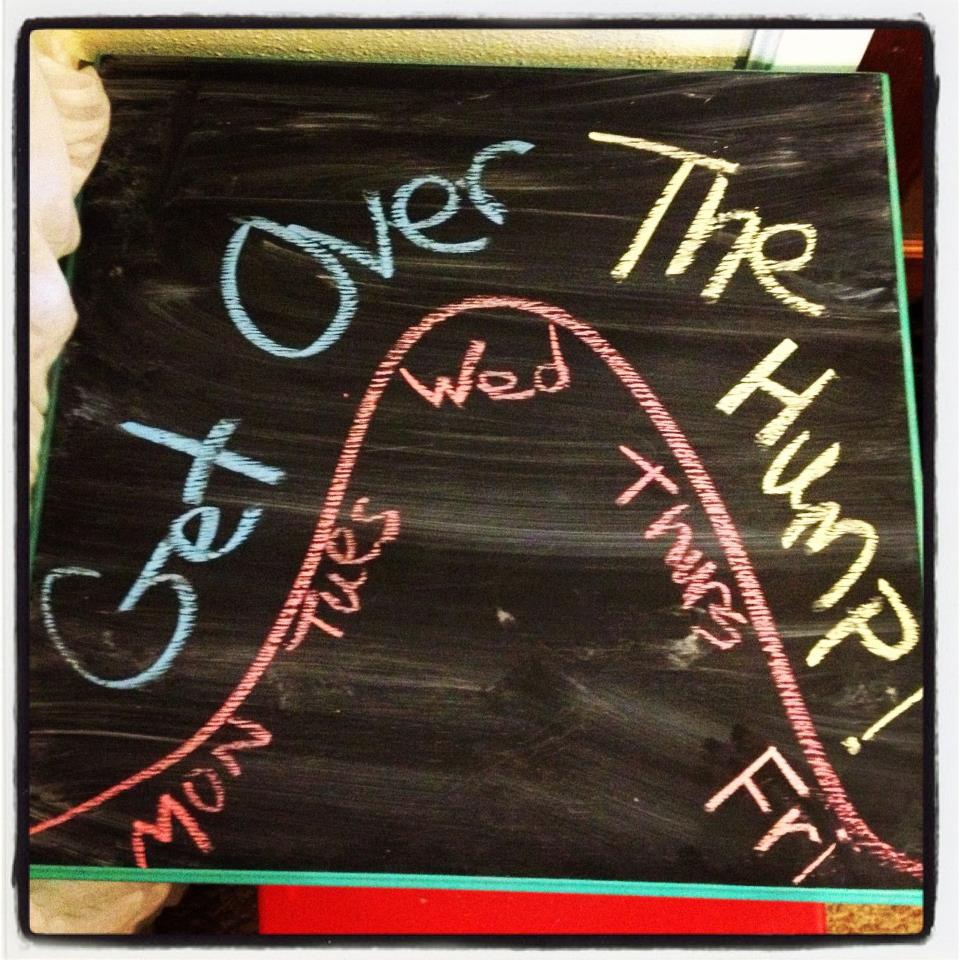 Get Over The Hump!
Mon
Tues
Wed
Thurs
Fri